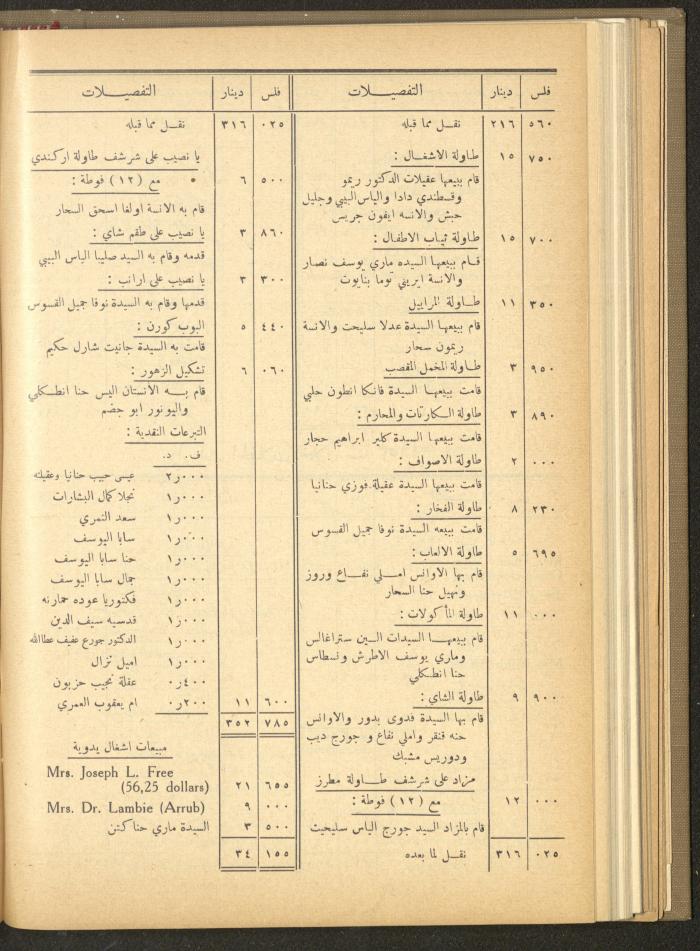 فلس دينار التفصيلات
٥٦٠ ٢١٦ نقل مما قبله
٧٥٠ ١٥ طاولة الاشغال :
قام ببيعها عقيلات الدكتور ريمو
وقسطندي دادا والياس البيبي وجليل
حبش والانسه ايفون جريس
٧٠٠ ١٥ طاولة ثياب الاطفال :
قام ببيعها السيده ماري يوسف نصار
والانسة ايريني توما بنايوت
٣٥٠ ١١ طاولة المراييل
قام ببيعها السيدة عدلا سليحت والانسة
ريمون سحار
٩٥٠ ٣ طاولة المخمل المقصب
قامت ببيعها السيدة فانكا انطون حلبي
٨٩٠ ٣ طاولة الكارتات والمحارم :
قامت ببيعها السيدة كلير ابراهيم حجار
٠٠٠ ٢ طاولة الاصواف :
قامت ببيعها السيدة عقيلة فوزي حنانيا
٢٣٠ ٨ طاولة الفخار :
قامت ببيعه السيدة نوفا جميل القسوس
٦٩٥ ٥ طاولة الالعاب :
قام بها الاوانس املي نفاع وروز
ونهيل حنا السحار
٠٠٠ ١١ طاولة المأكولات :
قام ببيعها السيدات الين ستراغالس
وماري يوسف الاطرش ونسطاس
حنا انطكلي
٩٠٠ ٩ طاولة الشاي :
قام بها السيدة فدوى بدور والاوانس
حنه قنقر واملي نفاع و جورج ديب
ودوريس مشبك
مزاد على شرشف طاولة مطرز
٠٠٠ ١٢ مع (١٢) فوطة :
قام بالمزاد السيد جورج الياس سليحيت
٠٢٥ ٣١٦ نقل لما بعده
فلس دينار التفصيلات
٠٢٥ ٣١٦ نقل مما قبله
يا نصيب على شرشف طاولة اركندي
٥٠٠ ٦ مع (١٢) فوطة :
قام به الانسة اولغا اسحق السحار
٨٦٠ ٣ يا نصيب على طقم شاي :
قدمه وقام به السيد صليبا الياس البيبي
٣٠٠ ٣ يا نصيب على ارانب :
قدمها وقام به السيدة نوفا جميل القسوس
٤٤٠ ٥ البوب كورن :
قامت به السيدة جانيت شارل حكيم
٠٦٠ ٦ تشكيل الزهور :
قام به الانستان اليس حنا انطكلي
واليونور ابو جضم
التبرعات النقدية :
ف. د.
٠٠٠ر٢ عيسى حبيب حنانيا وعقيلته
٠٠٠ر١ نجلا كمال البشارات
٠٠٠ر١ سعد النمري
٠٠٠ر١ سابا اليوسف
٠٠٠ر١ حنا سابا اليوسف
٠٠٠ر١ جمال سابا اليوسف
٠٠٠ر١ فكتوريا عوده حمارنه
٠٠٠ر١ قدسيه سيف الدين
٠٠٠ر١ الدكتور جورج عفيف عطاالله
٠٠٠ر١ اميل نزال
٤٠٠ر٠ عفلة نجيب حزبون
٦٠٠ ١١ ٢٠٠ر٠ ام يعقوب العمري
٧٨٥ ٣٥٢
مبيعات اشغال يدوية
Mrs. Joseph L. Free
٦٥٥ ٢١ (56,25 dollars)
٠٠٠ ٩ Mrs. Dr. Lambie (Arrub)
٥٠٠ ٣ السيدة ماري حنا كتن
١٥٥ ٣٤